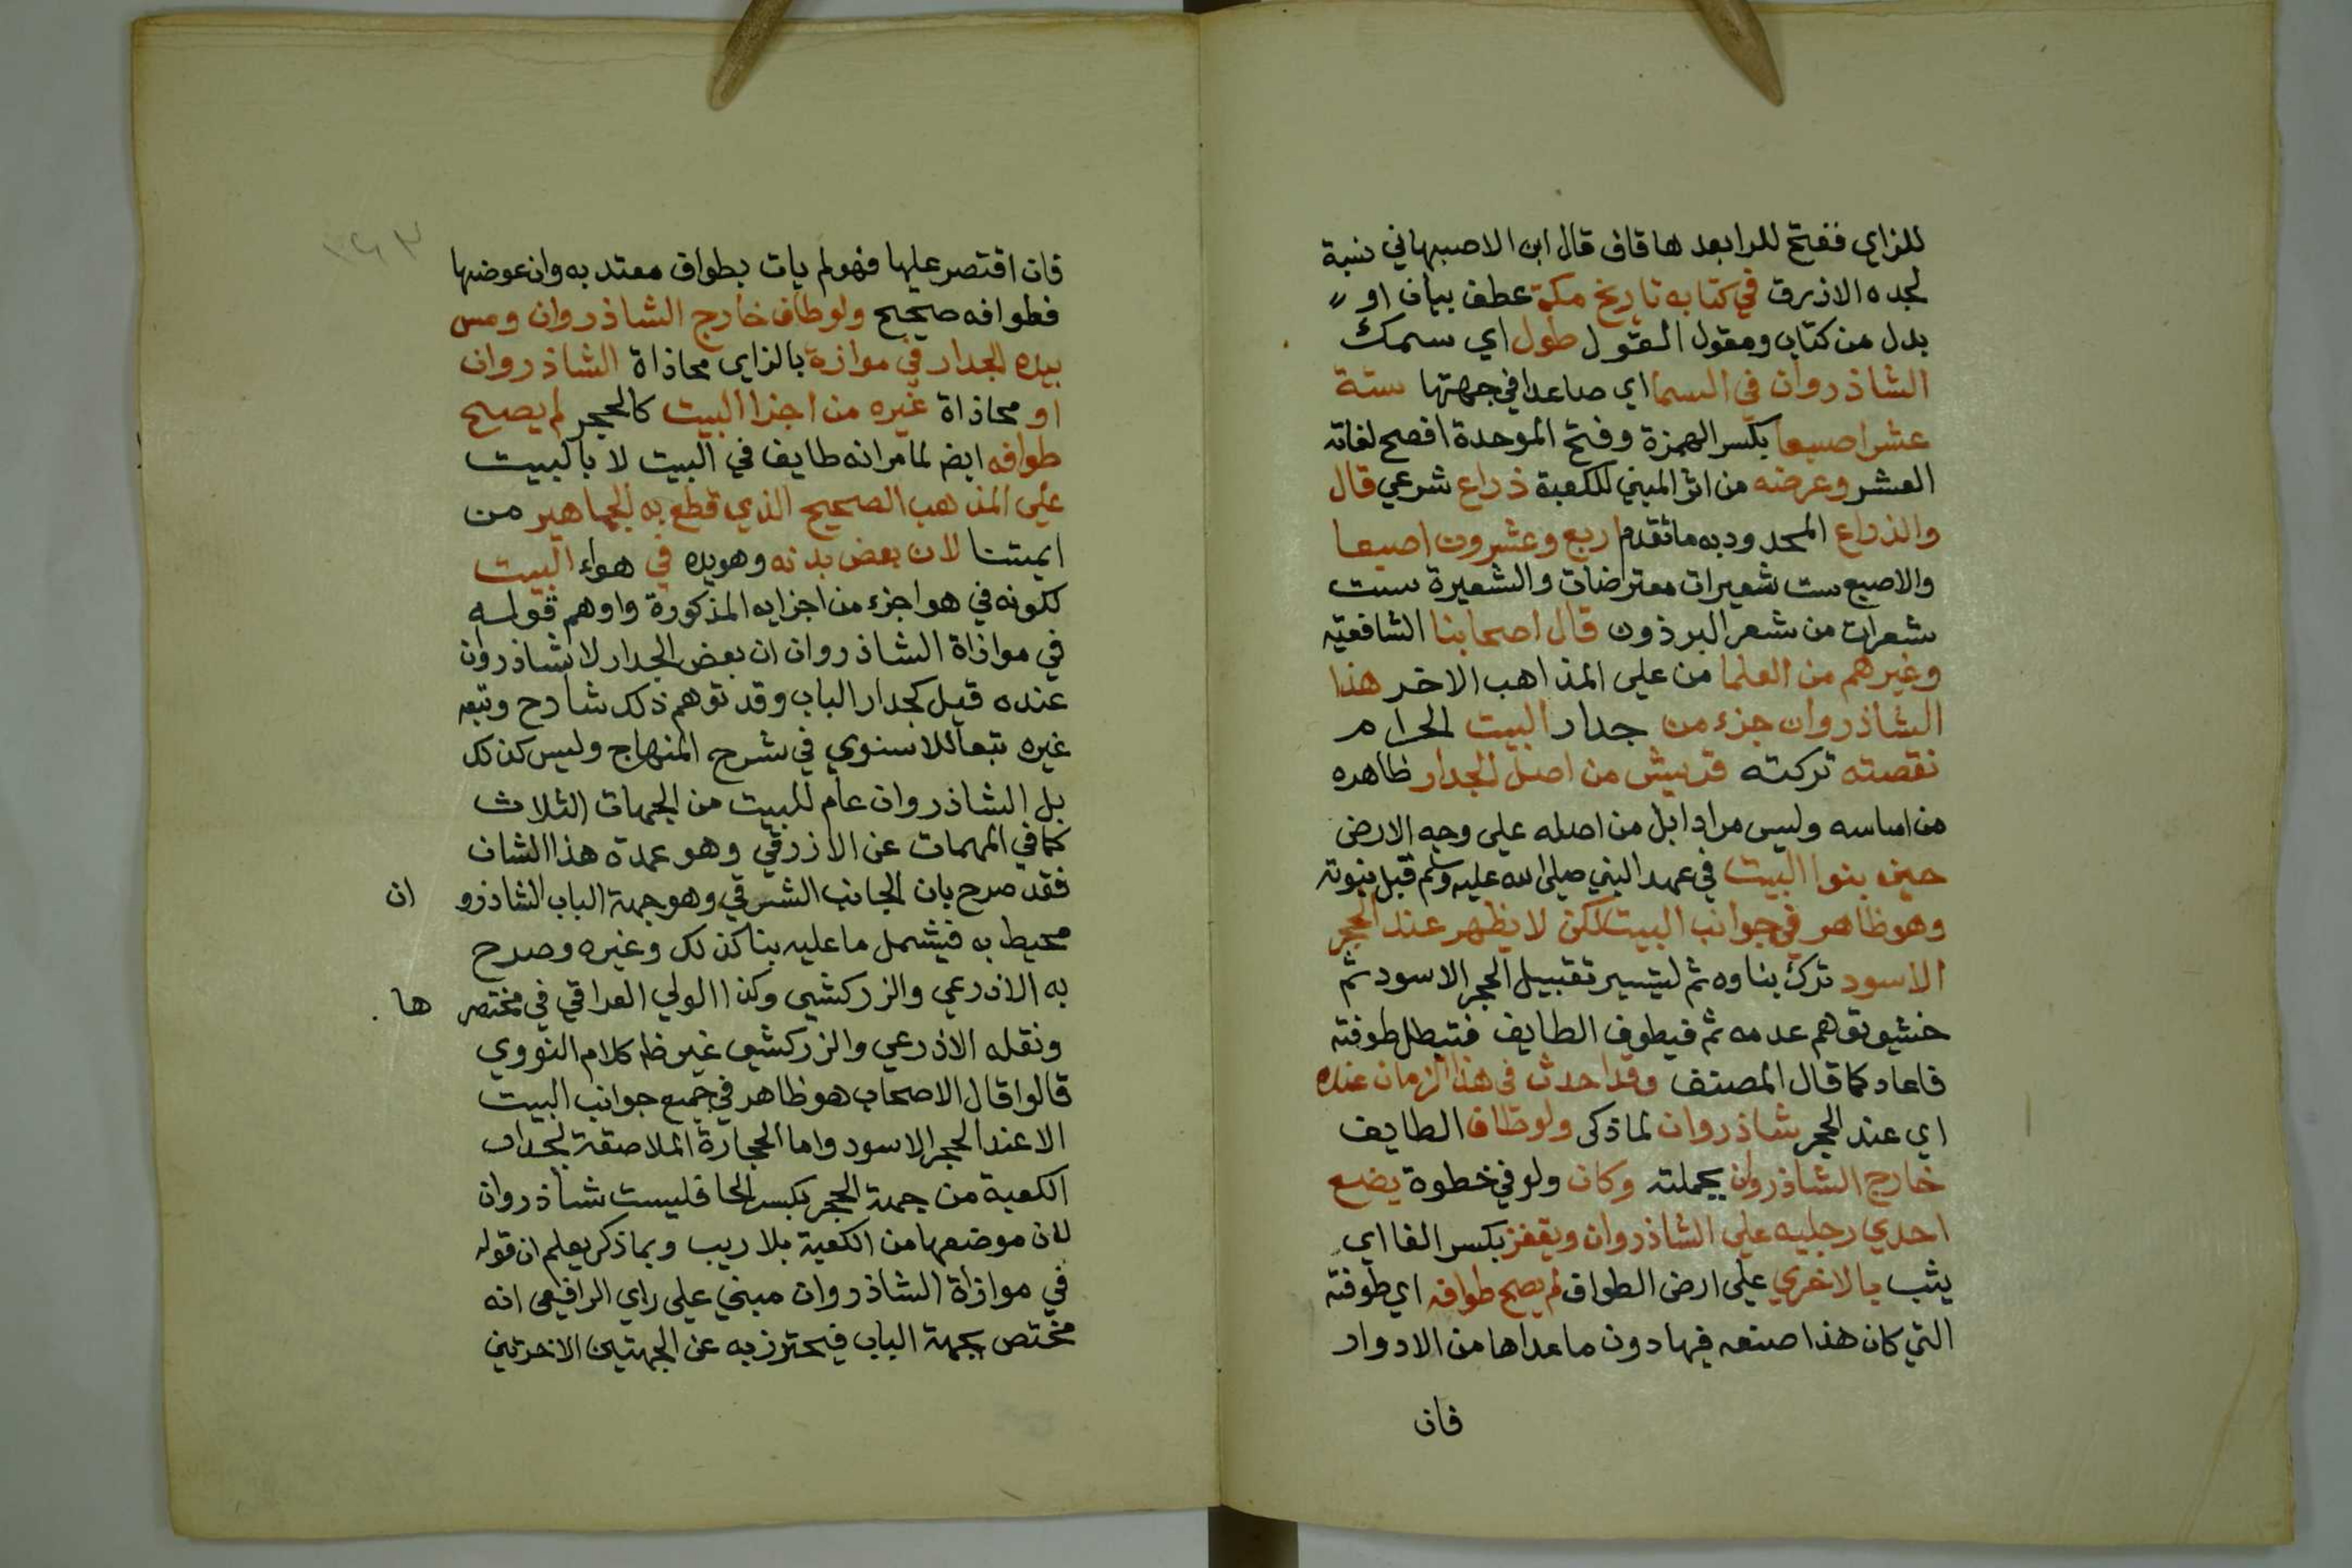 للزاي ففتح للرا بعدها قاف قال ابن الاصبهاني نسبة
لجده الازرق في كتابه تاريخ مكة عطف بيان او
بدل من كتاب ومقول القول طول اي سمك
الشاذروان في السما اي صاعدا في جهتها ستة
عشر اصبعا بكسر الهمزة وفتح الموحدة افصح لغاته
العشر وعرضه من اثر المبني للكعبة ذراع شرعي قال
والذراع المحدود به ما تقدم اربع وعشرون اصبعا
والاصبع ست شعيرات معترضات والشعيرة ست
شعرات من شعر البرذون قال اصحابنا الشافعية
وغيرهم من العلما من على المذاهب الاخر هذا
الشاذروان جزء من جدار البيت الحرام
نقصته تركته قريش من اصل الجدار ظاهره
من اساسه وليس مرادا بل من اصله على وجه الارض
حين بنوا البيت في عهد النبي صلى الله عليه وسلم قبل نبوته
وهو ظاهر في جوانب البيت لكن لا يظهر عند الحجر
الاسود ترك بناوه ثم ليتيسر تقبيل الحجر الاسود ثم
خشيو توهم عدمه ثم فيطوف الطايف فتبطل طوفته
فاعاد كما قال المصنف وقد احدث في هذا الزمان عنده
اي عند الحجر شاذروان لما ذكر ولو طاف الطايف
خارج الشاذروان بجملته وكان ولو في خطوة يضع
احدي رجليه على الشاذروان ويقفز بكسر الفا اي
يثب بالاخري على ارض الطواف لم يصح طوافه اي طوفته
التي كان هذا صنعه فيها دون ما عداها من الادوار
فان
فان اقتصر عليها فهو لم يات بطواف معتد به وان عوضها
فطوافه صحيح ولو طاف خارج الشاذروان ومس
بيده الجدار في موازة بالزاي محاذاة الشاذروان
او محاذاة غيره من اجزا البيت كالحجر لم يصح
طوافه ايضا لما مر انه طايف في البيت لا بالبيت
على المذهب الصحيح الذي قطع به الجماهير من
ايمتنا لان بعض بدنه وهو يده في هواء البيت
لكونه في هوا جزء من اجزايه المذكورة واوهم قوله
في موازاة الشاذروان ان بعض الجدار لا شاذروان
عنده قيل كجدار الباب وقد توهم ذلك شارح وتبعه
غيره تبعا للاسنوي في شرح المنهاج وليس كذلك
بل الشاذروان عام للبيت من الجهات الثلاث
كما في المهمات عن الازرقي وهو عمدة هذا الشان
فقد صرح بان الجانب الشرقي وهو جهة الباب الشاذرو ان
محيط به فيشمل ما عليه بنا كذلك وغيره وصرح
به الاذرعي والزركشي وكذا الولي العراقي في مختصر ها
ونقله الاذرعي والزركشي عن ظام كلام النووي
قالوا قال الاصحاب هو ظاهر في جميع جوانب البيت
الا عند الحجر الاسود واما الحجارة الملاصقة لجدار
الكعبة من جهة الحجر بكسر الحا فليست شاذروان
لان موضعها من الكعبة بلا ريب وبما ذكر يعلم ان قوله
في موازاة الشاذروان مبني على راي الرافعي انه
مختص بجهة الباب فيحترز به عن الجهتين الاخرتين